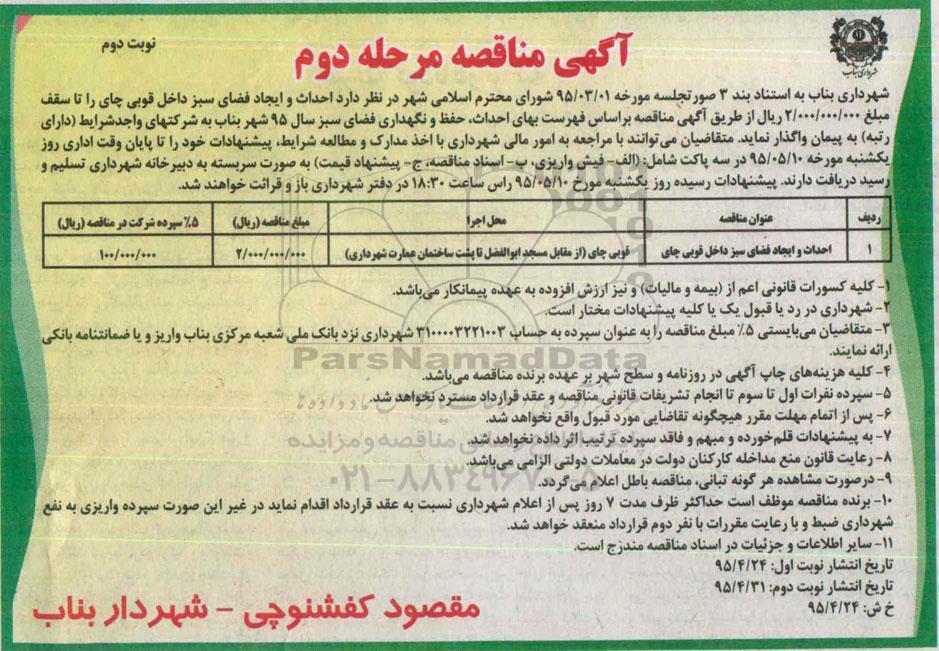 شهرداری بناب
نوبت دوم
آگهی مناقصه مرحله دوم
شهرداری بناب به استناد بند ۳ صورتجلسه مورخه ۹۵/۰۳/۰۱ شورای محترم اسلامی شهر در نظر دارد احداث و ایجاد فضای سبز داخل قوبی چای را تا سقف
مبلغ ۲/۰۰۰/۰۰۰/۰۰۰ ریال از طریق آگهی مناقصه براساس فهرست بهای احداث، حفظ و نگهداری فضای سبز سال ۹۵ شهر بناب به شرکتهای واجدشرایط (دارای
رتبه) به پیمان واگذار نماید. متقاضیان می‌توانند با مراجعه به امور مالی شهرداری با اخذ مدارک و مطالعه شرایط، پیشنهادات خود را تا پایان وقت اداری روز
یکشنبه مورخه ۹۵/۰۵/۱۰ در سه پاکت شامل: (الف- فیش واریزی، ب- اسناد مناقصه، ج- پیشنهاد قیمت) به صورت سربسته به دبیرخانه شهرداری تسلیم و
رسید دریافت دارند. پیشنهادات رسیده روز یکشنبه مورخ ۹۵/۰۵/۱۰ راس ساعت ۱۸:۳۰ در دفتر شهرداری باز و قرائت خواهند شد.
ردیف عنوان مناقصه محل اجرا مبلغ مناقصه (ریال) ۵٪ سپرده شرکت در مناقصه (ریال)
۱ احداث و ایجاد فضای سبز داخل قوبی چای قوبی چای (از مقابل مسجد ابوالفضل تا پشت ساختمان عمارت شهرداری) ۲/۰۰۰/۰۰۰/۰۰۰ ۱۰۰/۰۰۰/۰۰۰
۱- کلیه کسورات قانونی اعم از (بیمه و مالیات) و نیز ارزش افزوده به عهده پیمانکار می‌باشد.
۲- شهرداری در رد یا قبول یک یا کلیه پیشنهادات مختار است.
۳- متقاضیان می‌بایستی ۵٪ مبلغ مناقصه را به عنوان سپرده به حساب ۳۱۰۰۰۰۳۲۲۱۰۰۳ شهرداری نزد بانک ملی شعبه مرکزی بناب واریز و یا ضمانتنامه بانکی
ارائه نمایند.
۴- کلیه هزینه‌های چاپ آگهی در روزنامه و سطح شهر بر عهده برنده مناقصه می‌باشد.
۵- سپرده نفرات اول تا سوم تا انجام تشریفات قانونی مناقصه و عقد قرارداد مسترد نخواهد شد.
۶- پس از اتمام مهلت مقرر هیچگونه تقاضایی مورد قبول واقع نخواهد شد.
۷- به پیشنهادات قلم‌خورده و مبهم و فاقد سپرده ترتیب اثر داده نخواهد شد.
۸- رعایت قانون منع مداخله کارکنان دولت در معاملات دولتی الزامی می‌باشد.
۹- درصورت مشاهده هر گونه تبانی، مناقصه باطل اعلام می‌گردد.
۱۰- برنده مناقصه موظف است حداکثر ظرف مدت ۷ روز پس از اعلام شهرداری نسبت به عقد قرارداد اقدام نماید در غیر این صورت سپرده واریزی به نفع
شهرداری ضبط و با رعایت مقررات با نفر دوم قرارداد منعقد خواهد شد.
۱۱- سایر اطلاعات و جزئیات در اسناد مناقصه مندرج است.
تاریخ انتشار نوبت اول: ۹۵/۴/۲۴
تاریخ انتشار نوبت دوم: ۹۵/۴/۳۱
خ ش: ۹۵/۴/۲۴
مقصود کفشنوچی - شهردار بناب
ParsNamadData
۰۲۱-۸۸۳۴۹۶۷۰